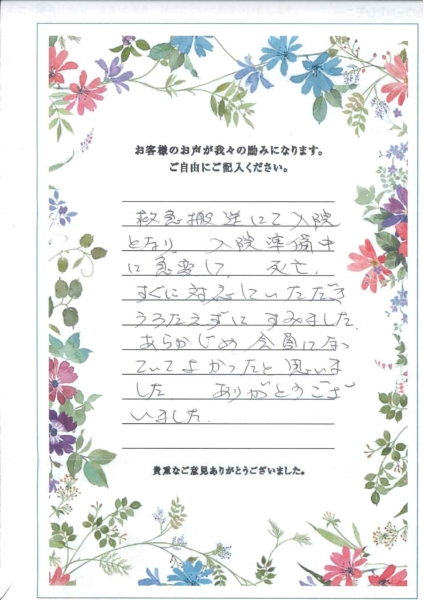 お客様のお声が我々の励みになります。
ご自由にご記入ください。
救急搬送にて入院
となり 入院準備中
に急変して 死亡、
すぐに対応していただき
うろたえずに すみました。
あらかじめ会員になっ
ていてよかったと思いま
した ありがとうござ
いました。
貴重なご意見ありがとうございました。